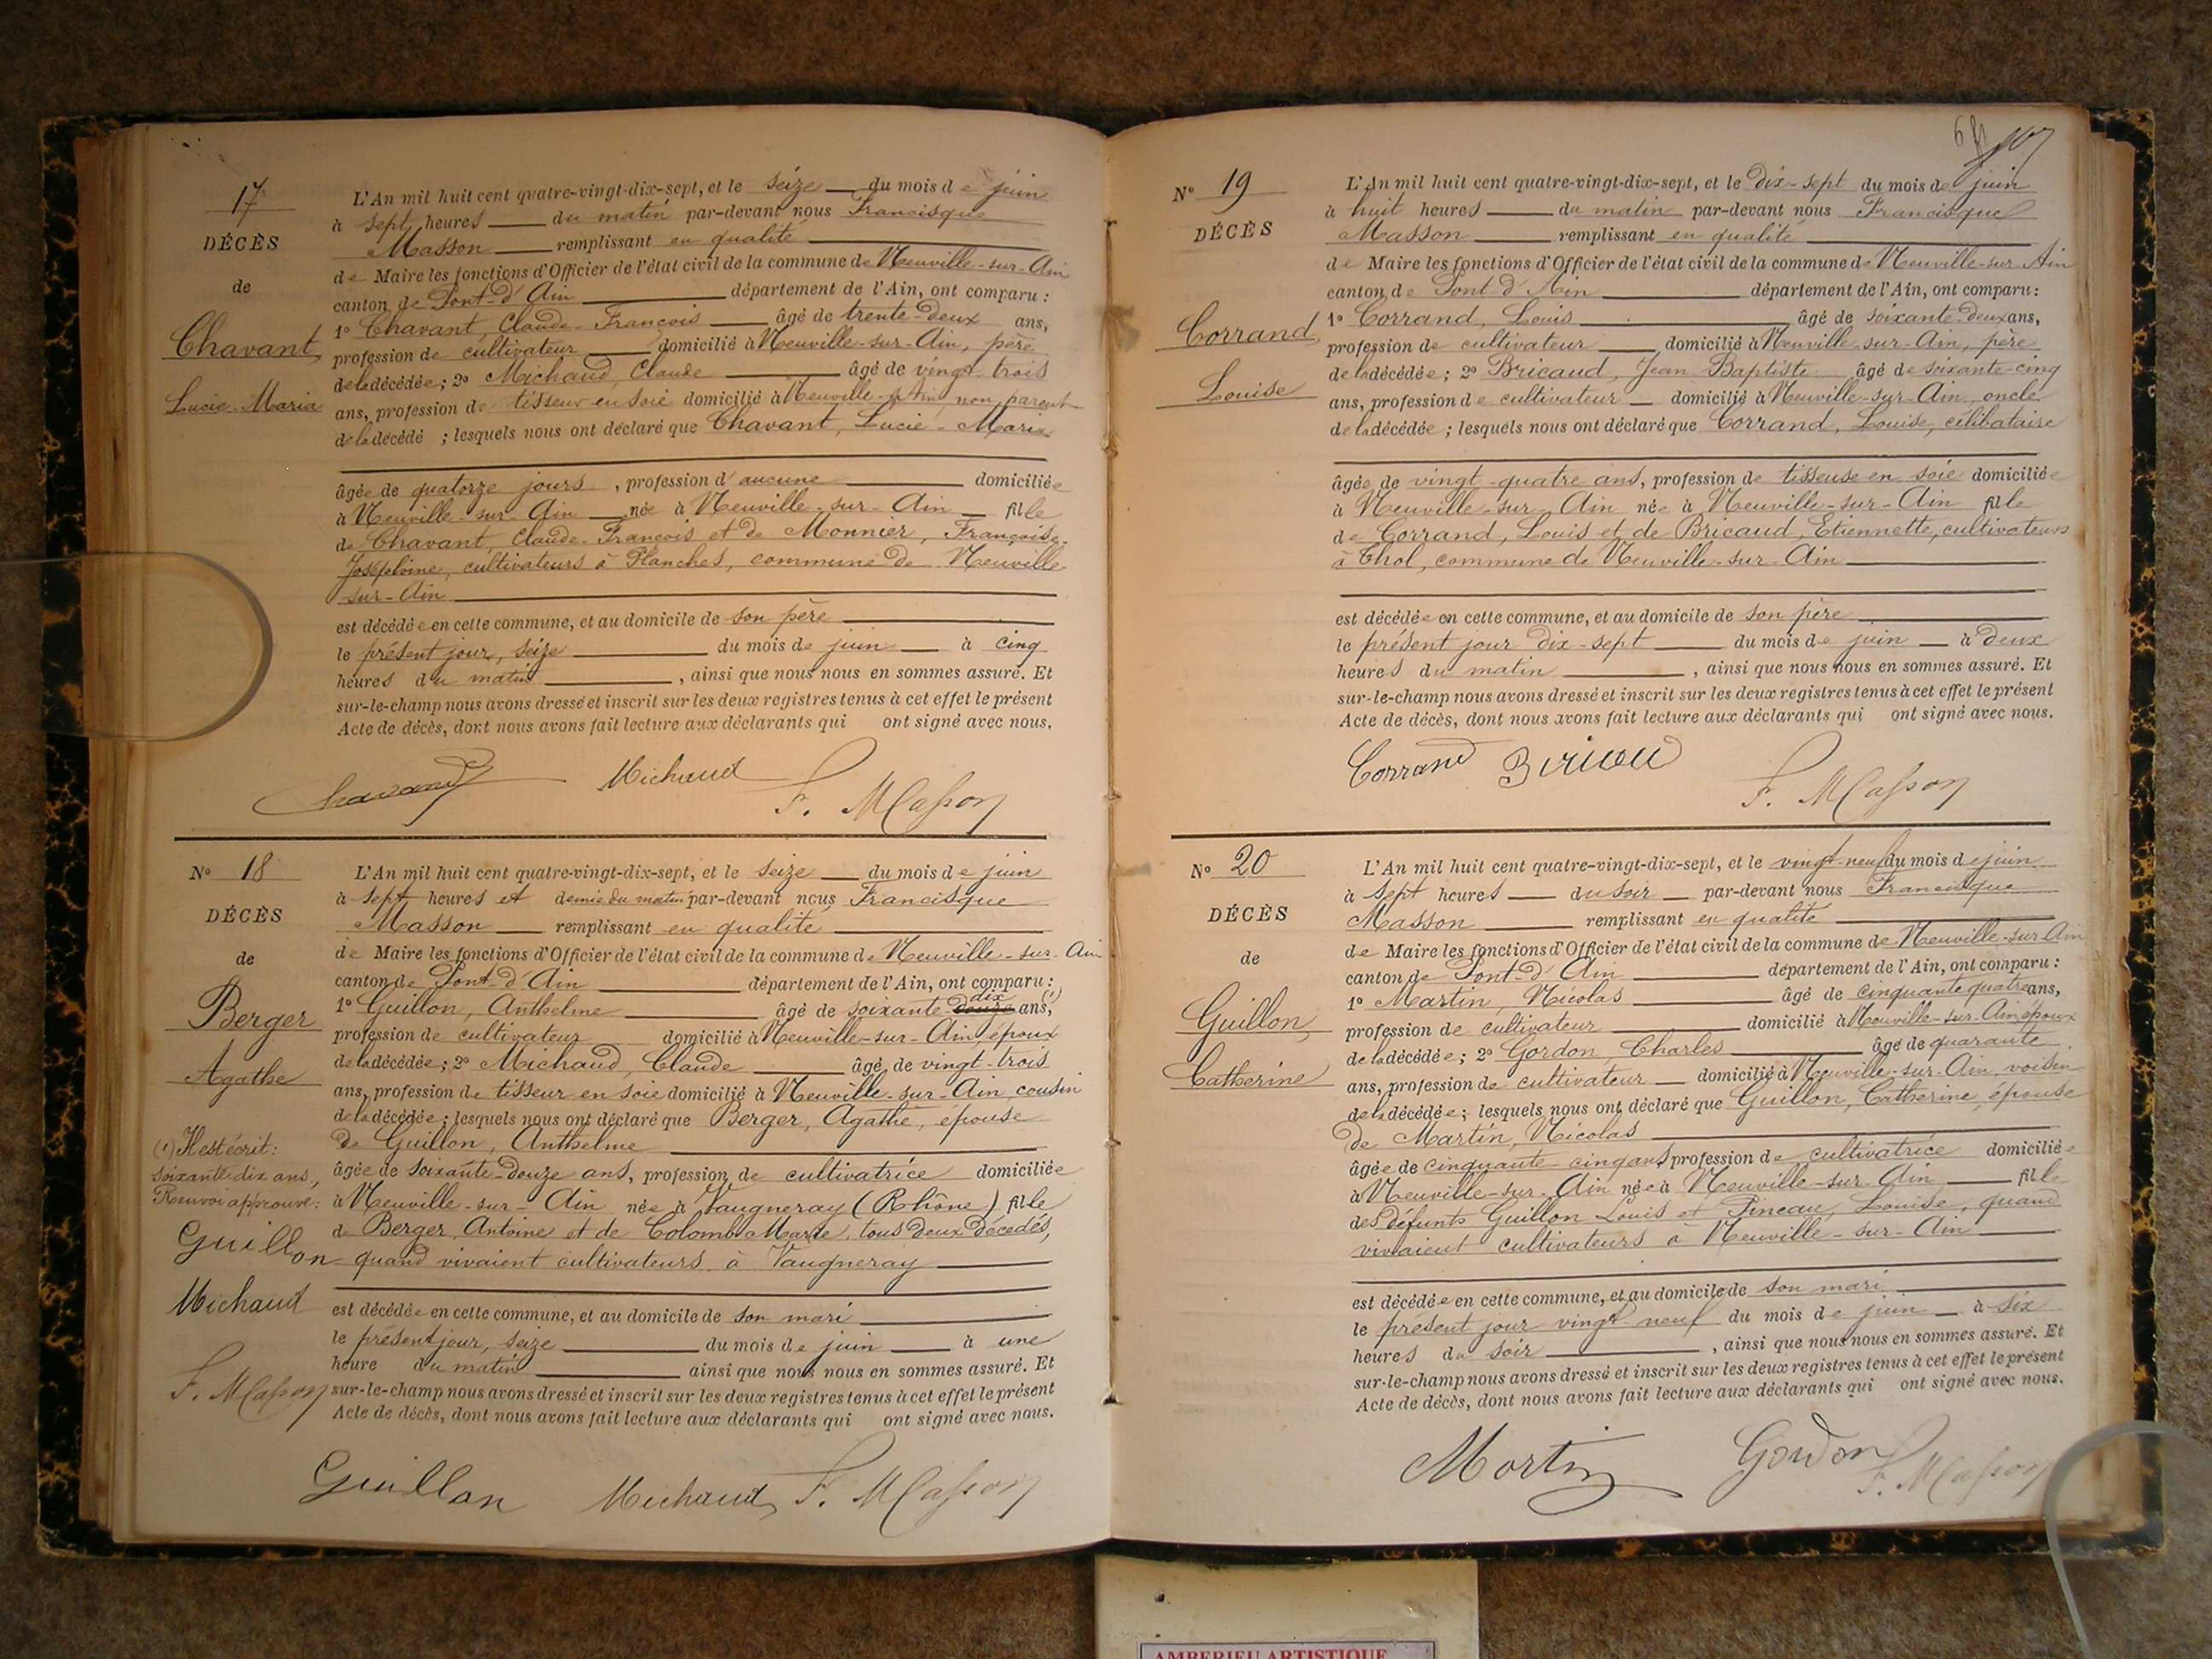 17
DÉCÈS
de
Chavant,
Lucie-Marie
L'An mil huit cent quatre-vingt-dix-sept, et le seize du mois de juin
à sept heures du matin par-devant nous Francisque
Masson remplissant en qualité
de Maire les fonctions d'Officier de l'état civil de la commune de Neuville-sur-Ain
canton de Pont-d'Ain département de l'Ain, ont comparu :
1º Chavant, Claude-François âgé de trente-deux ans,
profession de cultivateur domicilié à Neuville-sur-Ain, père
de la décédée ; 2º Michaud, Claude âgé de vingt-trois
ans, profession de tisseur en soie domicilié à Neuville-s-Ain, non parent
de la décédé ; lesquels nous ont déclaré que Chavant, Lucie-Marie
âgée de quatorze jours, profession d'aucune domiciliée
à Neuville-sur-Ain née à Neuville-sur-Ain fille
de Chavant, Claude-François et de Monnier, Françoise-
Joséphine, cultivateurs à Planches, commune de Neuville
sur-Ain
est décédée en cette commune, et au domicile de son père
le présent jour, seize du mois de juin à cinq
heures du matin, ainsi que nous nous en sommes assuré. Et
sur-le-champ nous avons dressé et inscrit sur les deux registres tenus à cet effet le présent
Acte de décès, dont nous avons fait lecture aux déclarants qui ont signé avec nous.
Chavand Michaud F. Masson
Nº 18
DÉCÈS
de
Berger
Agathe
L'An mil huit cent quatre-vingt-dix-sept, et le seize du mois de juin
à sept heures et demie du matin par-devant nous Francisque
Masson remplissant en qualité
de Maire les fonctions d'Officier de l'état civil de la commune de Neuville-sur-Ain
canton de Pont-d'Ain département de l'Ain, ont comparu :
1º Guillon, Anthelme âgé de soixante-douze dix ans, (1)
profession de cultivateur domicilié à Neuville-sur-Ain, époux
de la décédée ; 2º Michaud, Claude âgé de vingt-trois
ans, profession de tisseur en soie domicilié à Neuville-sur-Ain, cousin
de la décédée ; lesquels nous ont déclaré que Berger, Agathe, épouse
de Guillon, Anthelme
âgée de soixante-douze ans, profession de cultivatrice domiciliée
à Neuville-sur-Ain née à Vaugneray (Rhône) fille
de Berger, Antoine et de Colomb Marie, tous deux décédés,
quand vivaient cultivateurs à Vaugneray
est décédée en cette commune, et au domicile de son mari
le présent jour, seize du mois de juin à une
heure du matin ainsi que nous nous en sommes assuré. Et
sur-le-champ nous avons dressé et inscrit sur les deux registres tenus à cet effet le présent
Acte de décès, dont nous avons fait lecture aux déclarants qui ont signé avec nous.
(1) Il est écrit :
soixante-dix ans,
Renvoi approuvé :
Guillon
Michaud
F. Masson
Guillon Michaud F. Masson
Nº 19
DÉCÈS
Corrand,
Louise
L'An mil huit cent quatre-vingt-dix-sept, et le dix-sept du mois de juin
à huit heures du matin par-devant nous Francisque
Masson remplissant en qualité
de Maire les fonctions d'Officier de l'état civil de la commune de Neuville-sur-Ain
canton de Pont-d'Ain département de l'Ain, ont comparu :
1º Corrand, Louis âgé de soixante-deux ans,
profession de cultivateur domicilié à Neuville-sur-Ain, père
de la décédée ; 2º Bricaud, Jean Baptiste âgé de soixante-cinq
ans, profession de cultivateur domicilié à Neuville-sur-Ain, oncle
de la décédée ; lesquels nous ont déclaré que Corrand, Louise, célibataire
âgée de vingt-quatre ans, profession de tisseuse en soie domiciliée
à Neuville-sur-Ain née à Neuville-sur-Ain fille
de Corrand, Louis et de Bricaud, Etiennette, cultivateurs
à Thol, commune de Neuville-sur-Ain
est décédée en cette commune, et au domicile de son père
le présent jour dix-sept du mois de juin à deux
heures du matin, ainsi que nous nous en sommes assuré. Et
sur-le-champ nous avons dressé et inscrit sur les deux registres tenus à cet effet le présent
Acte de décès, dont nous avons fait lecture aux déclarants qui ont signé avec nous.
Corrand F. Masson
Nº 20
DÉCÈS
de
Guillon,
Catherine
L'An mil huit cent quatre-vingt-dix-sept, et le vingt-neuf du mois de juin
à sept heures du soir par-devant nous Francisque
Masson remplissant en qualité
de Maire les fonctions d'Officier de l'état civil de la commune de Neuville-sur-Ain
canton de Pont-d'Ain département de l'Ain, ont comparu :
1º Martin, Nicolas âgé de cinquante quatre ans,
profession de cultivateur domicilié à Neuville-sur-Ain, époux
de la décédée ; 2º Gordon, Charles âgé de quarante
ans, profession de cultivateur domicilié à Neuville-sur-Ain, voisin
de la décédée ; lesquels nous ont déclaré que Guillon, Catherine, épouse
de Martin, Nicolas
âgée de cinquante-cinq ans, profession de cultivatrice domiciliée
à Neuville-sur-Ain née à Neuville-sur-Ain fille
des défunts Guillon Louis et Pineau, Louise, quand
vivaient cultivateurs à Neuville-sur-Ain
est décédée en cette commune, et au domicile de son mari
le présent jour vingt-neuf du mois de juin à six
heures du soir, ainsi que nous nous en sommes assuré. Et
sur-le-champ nous avons dressé et inscrit sur les deux registres tenus à cet effet le présent
Acte de décès, dont nous avons fait lecture aux déclarants qui ont signé avec nous.
Martin Gordon F. Masson
AMBERIEU ARTISTIQUE